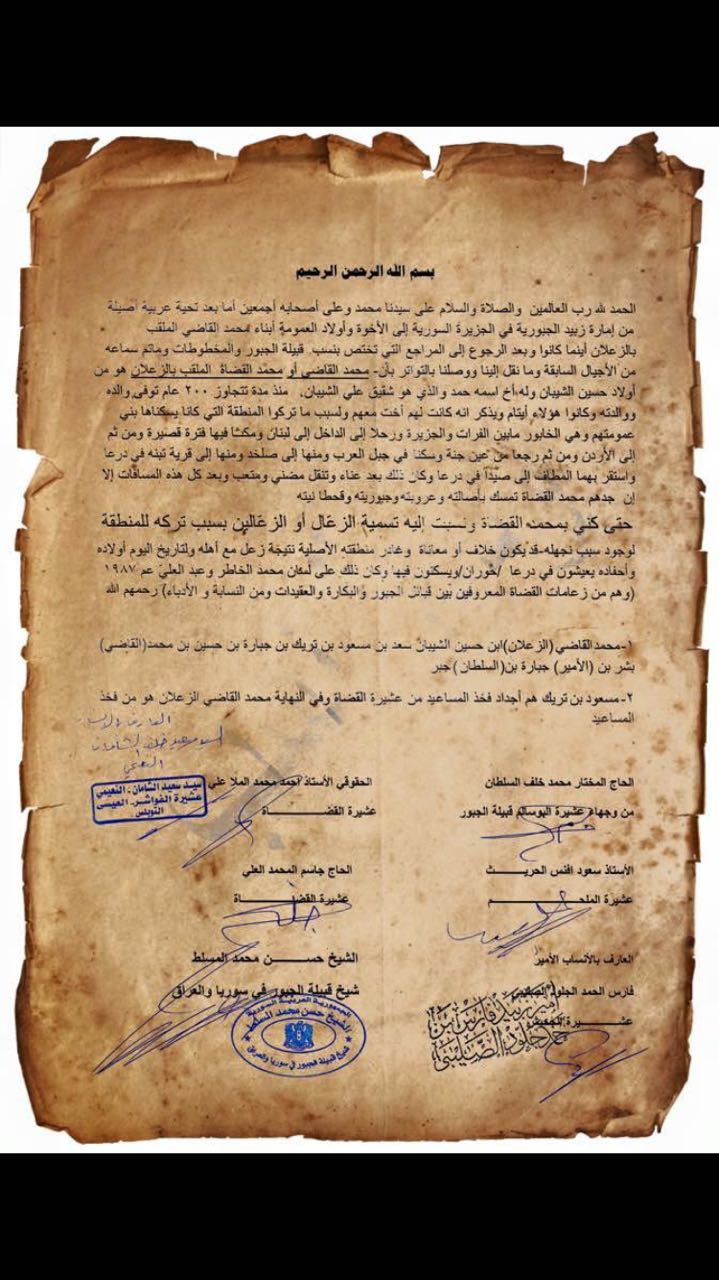 بسم الله الرحمن الرحيم
الحمد لله رب العالمين والصلاة والسلام على سيدنا محمد وعلى أصحابه أجمعين أما بعد تحية عربية أصيلة
من إمارة زبيد الجبورية في الجزيرة السورية إلى الأخوة وأولاد العمومة أبناء محمد القاضي الملقب
بالزعلان أينما كانوا وبعد الرجوع إلى المراجع التي تختص بنسب قبيلة الجبور والمخطوطات وماتم سماعه
من الأجيال السابقة وما نقل إلينا ووصلنا بالتواتر بأن- محمد القاضي أو محمد القضاة الملقب بالزعلان هو من
أولاد حسين الشيبان وله أخ اسمه حمد والذي هو شقيق علي الشيبان, منذ مدة تتجاوز ٢٠٠ عام توفي والده
ووالدته وكانوا هؤلاء أيتام ويذكر انه كانت لهم أخت معهم ولسبب ما تركوا المنطقة التي كانا يسكناها بني
عمومتهم وهي الخابور مابين الفرات والجزيرة ورحلا إلى الداخل إلى لبنان ومكثا فيها فترة قصيرة ومن ثم
إلى الأردن ومن ثم رجعا من عين جنة وسكنا في جبل العرب ومنها إلى صلخد ومنها إلى قرية تبنه في درعا
واستقر بهما المطاف إلى صيدا في درعا وكان ذلك بعد عناء وتنقل مضني ومتعب وبعد كل هذه المسافات إلا
إن جدهم محمد القضاة تمسك بأصالته وعروبته وجبوريته وقحطانيته
حتى كني بمحمد القضاة ونسبت إليه تسمية الزعال أو الزعالين بسبب تركه للمنطقة
لوجود سبب نجهله-قد يكون خلاف أو معاناة وغادر منطقته الأصلية نتيجة زعل مع أهله ولتاريخ اليوم أولاده
وأحفاده يعيشون في درعا /حوران/ويسكنون فيها وكان ذلك على لسان محمد الخاطر وعبد العلي عم ١٩٨٧
(وهم من زعامات القضاة المعروفين بين قبائل الجبور والبكارة والعقيدات ومن النسابة و الأدباء) رحمهم الله
١-محمد القاضي(الزعلان)ابن حسين الشيبان سعد بن مسعود بن تريك بن جبارة بن حسين بن محمد(القاضي)
بشر بن (الأمير) جبارة بن(السلطان)جبر
٢-مسعود بن تريك هم أجداد فخذ المساعيد من عشيرة القضاة وفي النهاية محمد القاضي الزعلان هو من فخذ
المساعيد
الحاج المختار محمد خلف السلطان
من وجهاء عشيرة البوسالم قبيلة الجبور
الحقوقي الأستاذ احمد محمد الملا علي
عشيرة القضاة
سيد سعيد الشامان - النعيمي
عشيرة الفواشر - العيسى
الأستاذ سعود افنس الحريث
عشيرة الملحم
الحاج جاسم المحمد العلي
عشيرة القضاة
العارف بالأنساب الأمير
فارس الحمد الجلود
الشيخ حسن محمد المسلط
شيخ قبيلة الجبور في سوريا والعراق
الجمهورية العربية السورية
الشيخ حسن محمد المسلط
شيخ قبيلة الجبور في سوريا والعراق